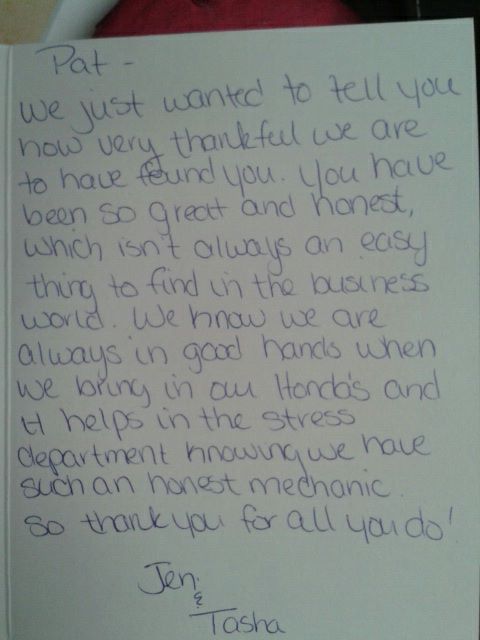 Pat -
we just wanted to tell you
how very thankful we are
to have found you. You have
been so great and honest,
which isn't always an easy
thing to find in the business
world. We know we are
always in good hands when
we bring in our Honda's and
it helps in the stress
department knowing we have
such an honest mechanic.
So thank you for all you do!
Jen
&
Tasha